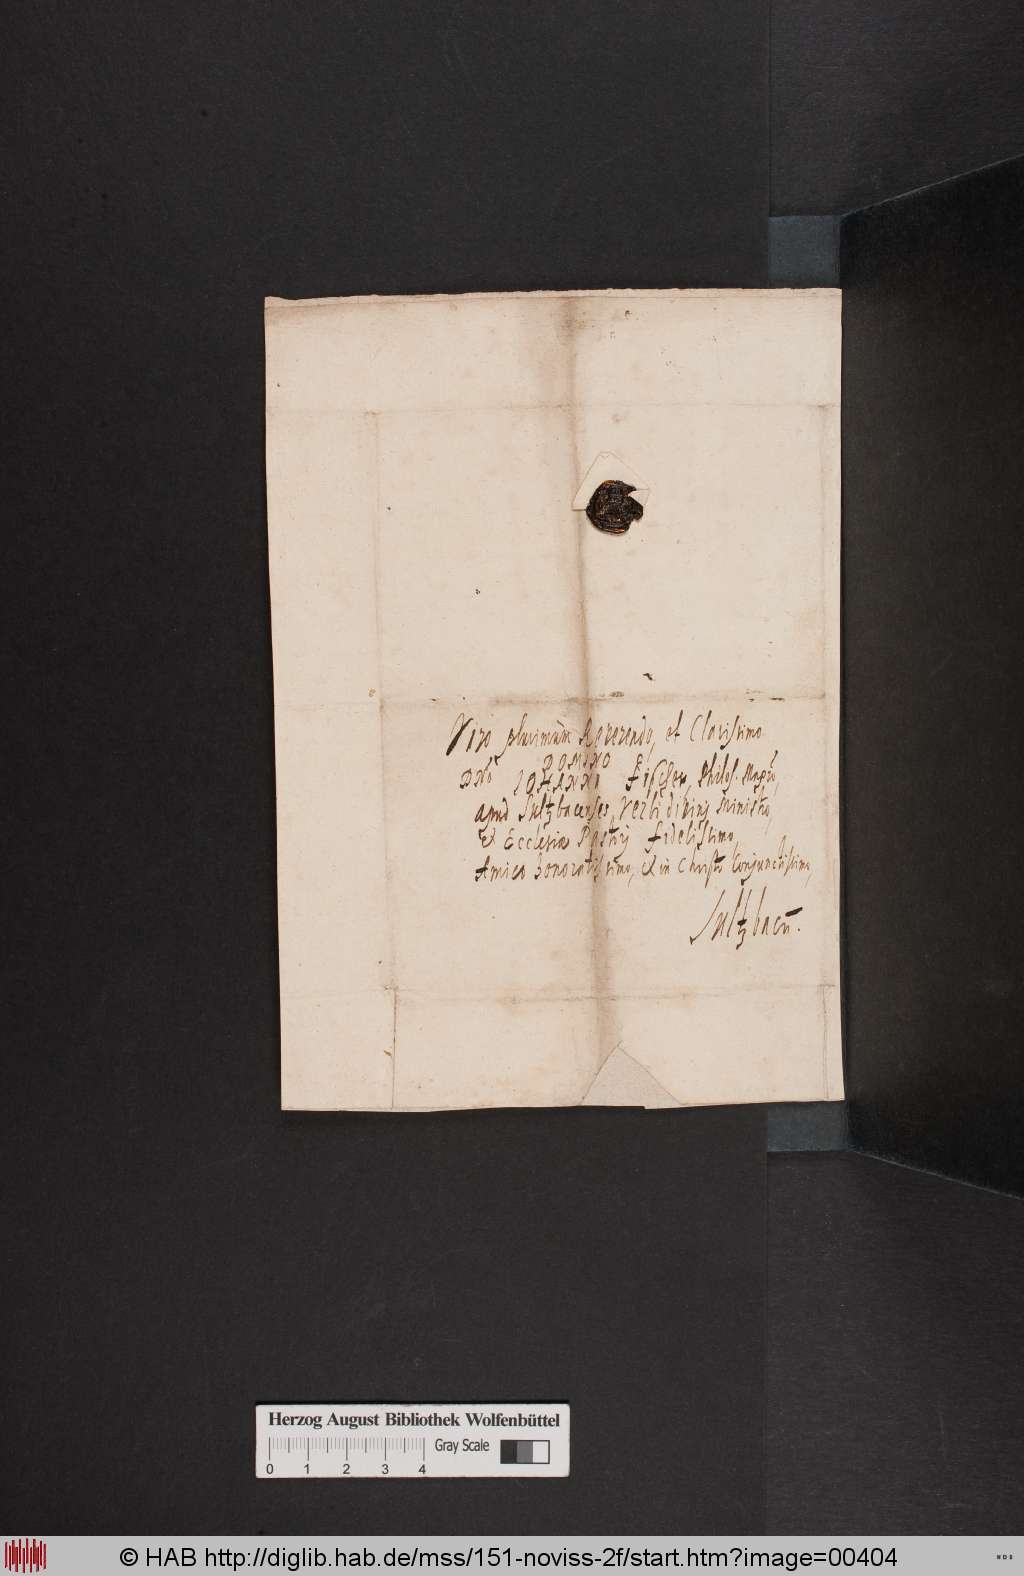 Viro plurimùm Reverendo, et Clarissimo
DOMINO
Dno JOHANNI Fischer, Philos. Magro,
apud Sultzbacenses, Verbi divini Ministro,
& Ecclesiæ Pastori fidelissimo,
Amico honoratissimo, & in Christo Conjunctissimo,
Sultzbach.
Herzog August Bibliothek Wolfenbüttel
Gray Scale
0 1 2 3 4
© HAB http://diglib.hab.de/mss/151-noviss-2f/start.htm?image=00404